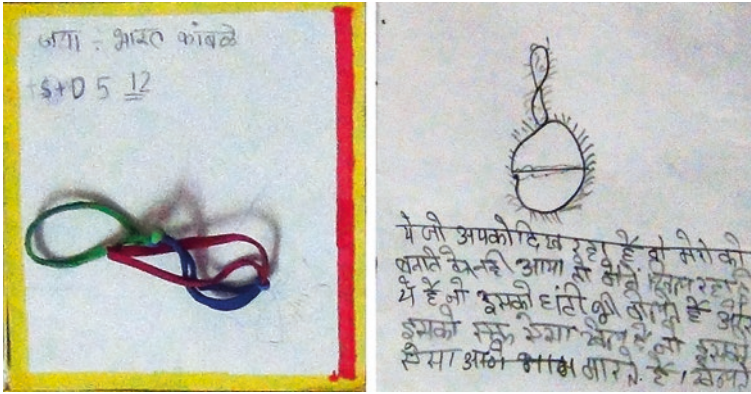 जया : भारत कांबळे
STD 5 12
ये जो आपको दिख रहा है वो मेरेको
बनाते नही आया तो मैने
ये है जो इसको घंटी भी बोलते है और
इसको एक ऐसा खेल है जो इसको
ऐसा आगे मारते है।